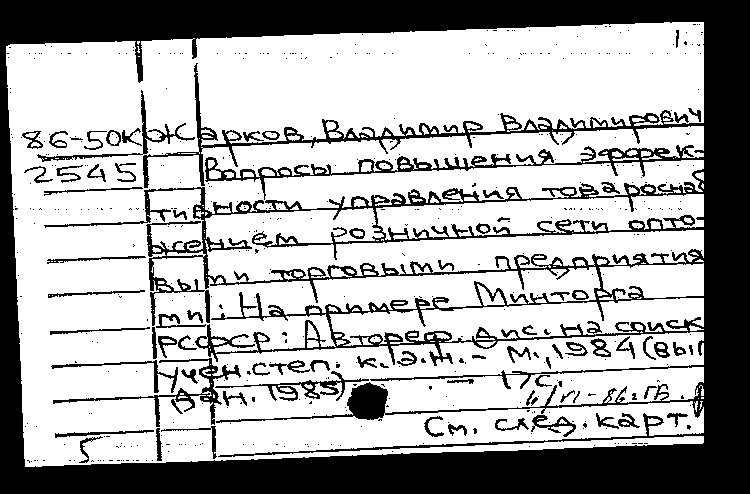 1.
86-50к Жарков, Владимир Владимирович
2545 Вопросы повышения эффек-
тивности управления товароснаб
жением розничной сети опто-
выми торговыми предприятия
ми: На примере Минторга
РСФСР: Автореф. дис. на соиск
учен. степ. к.э.н. - М., 1984 (вып
дан. 1985). - 17с.
См. след. карт.
5